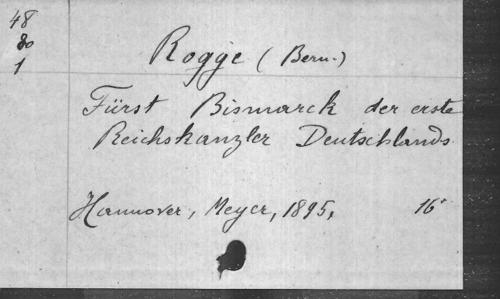 48
80
1
Rogge (Bern.)
Fürst Bismarck der erste
Reichskanzler Deutschlands.
Hannover, Meyer, 1895, 16°